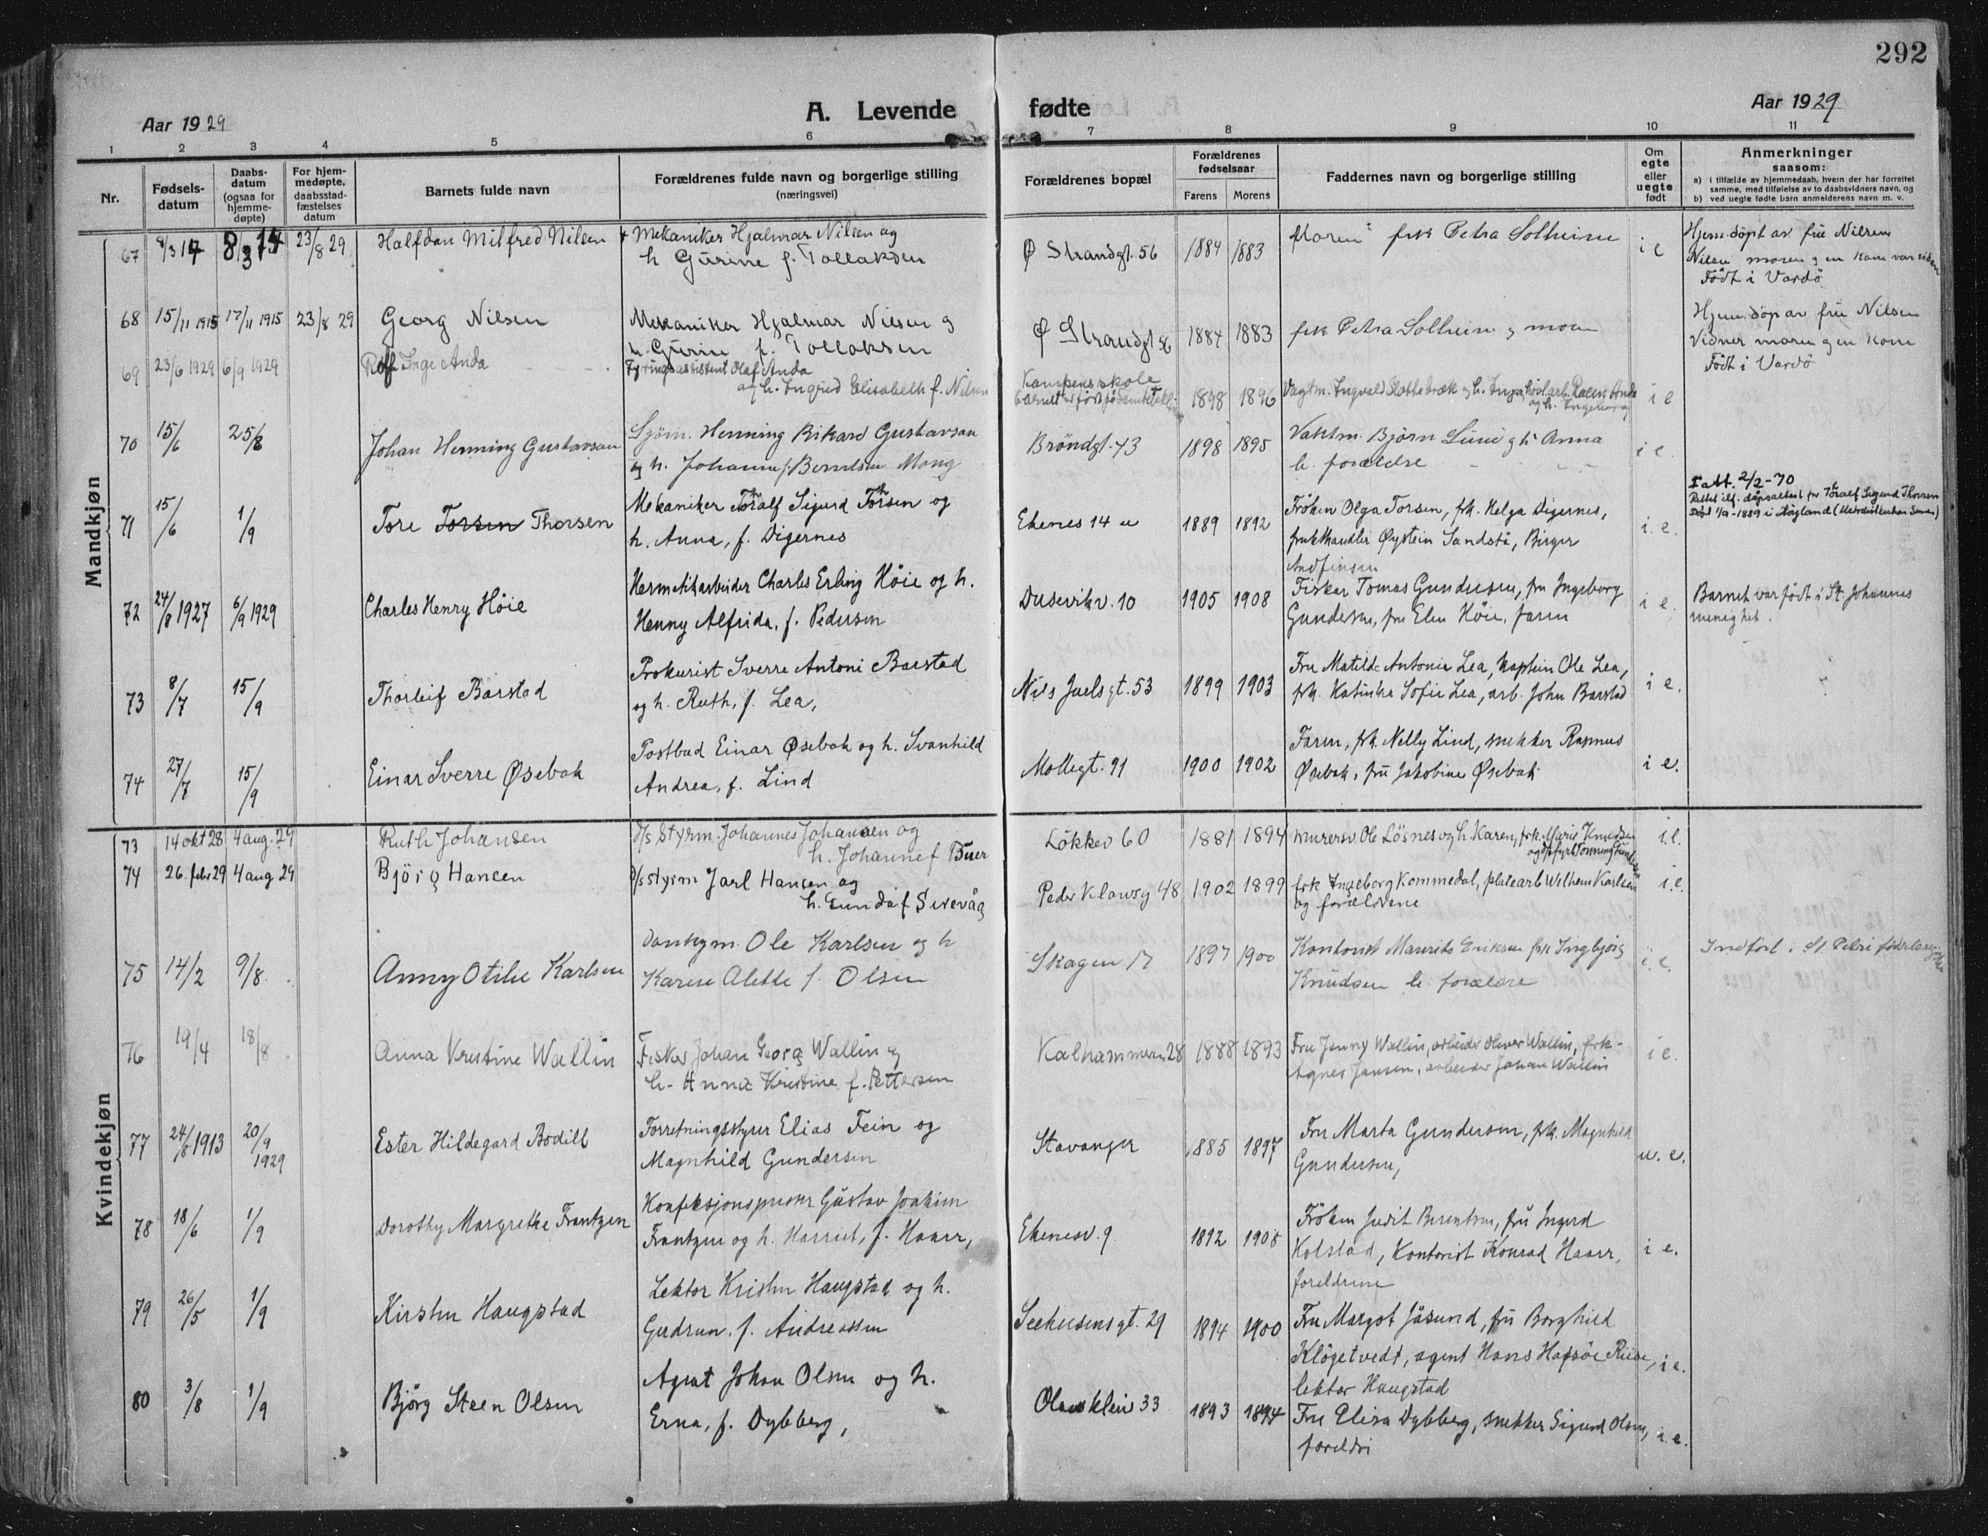 292
Aar 1929
A. Levende
fødte
Aar 1929
1 2 3 4 5 6 7 8 9 10 11
Nr.
Fødsels-
datum
Daabs-
datum
(ogsaa for
hjemme-
døpte)
For hjem-
medøpte,
daabsstad-
fæstelses
datum
Barnets fulde navn
Forældrenes fulde navn og borgerlige stilling
(næringsvei)
Forældrenes bopæl
Forældrenes
fødselsaar
Farens Morens
Faddernes navn og borgerlige stilling
Om
egte
eller
uegte
født
Anmerkninger
saasom:
a) i tilfælde av hjemmedaab, hvem der har forrettet
samme, med tilføielse av to daabsvidners navn, og
b) ved uegte fødte barn anmelderens navn m. v.
Mandkjøn
67 8/3 14 8/3 14 23/8 29 Halfdan Milfred Nilsen
Mekaniker Hjalmar Nilsen og
h Gurine f. Tollaksen
Ø Strandgt. 56 1884 1883
Moren frk Petra Solheim
i e
Hjem.døpt av fru Nilsen
Født i Vardö
68 15/11 1915 17/11 1915 23/8 29 Georg Nilsen
Mekaniker Hjalmar Nilsen og
h. Gurine f. Tollaksen
Ø Strandgt 56 1884 1883
frk Petra Solheim og moren
Hjem.døp av fru Nilsen
Vidner moren og en kone
Født i Vardö
69 23/6 1929 6/9 1929 Rolf Inge Anda
Fyringsassistent Olaf Anda
og h. Ingrid Elisabeth f. Nilsen
Kampens skole
1898 1896
i e
70 15/6 25/8 Johan Henning Gustavsen
Sjöm. Henning Rikard Gustavsen
og h. Johanne f. Berntsen Mong
Bröndgt. 43 1898 1895
Vaktm. Bjørn Lima og h Anna
b. forældre
i e.
71 15/6 1/9 Tore Torsen Thorsen
Mekaniker Toralf Sigurd Torsen og
h. Anna, f. Digernes
Ekenes 14 a 1889 1892
Fröken Olga Torsen, frk. Helga Digernes,
frukthandler Øystein Sandstå, Birger
Andfinsen
i. e.
Fatt. 2/2-70
72 24/8 1927 6/9 1929 Charles Henry Höie
Hermetikarbeider Charles Erling Höie og h.
Henny Alfrida, f. Pedersen
Dusevikv. 10 1905 1908
Fisker Tomas Gundersen, fru Ingeborg
Gundersen, fru Elen Höie, faren
i e.
Barnet var født i St. Johannes
menighet.
73 8/7 15/9 Thorleif Barstad
Prokurist Sverre Antoni Barstad
og h. Ruth, f. Lea,
Nils Juels gt. 53 1899 1903
Fru Matilde Antonie Lea, kaptein Ole Lea,
frk. Katinka Sofie Lea, arb. John Barstad
i e.
74 27/7 15/9 Einar Sverre Øsebak
Postbud Einar Øsebak og h. Svanhild
Andrea, f. Lind
Mollegt. 91 1900 1902
Faren, frk. Nelly Lind, snekker Rasmus
Øsebak, fru Jakobine Øsebak
i e.
Kvindekjøn
73 14 okt 28 4 aug. 29 Ruth Johansen
d/s Styrm. Johannes Johansen og
h. Johanne f Buer
Lökkev 60 1881 1894
murersv Ole Løsnes og h. Karen, frk. Marie Knudsen
i. e.
74 26 febr 29 4 aug 29 Björg Hansen
d/s styrm Jarl Hansen og
h. Gunda f Sirevåg
Peder Klowsg 48 1902 1899
frk Ingeborg Kommedal, platearb Wilhem Karlsen
og forældrene
i. e.
75 14/2 9/8 Anny Otilie Karlsen
Ole Karlsen og h
Karen Alette f. Olsen
Skagen 17 1897 1900
Kontorist Maurits Eriksen frk Ingbjørg
Knudsen b. forældre
i. e.
Indførl. i St. Petri
76 19/4 18/8 Anna Kristine Wallin
Fisker Johan Georg Wallin og
h. Anna Kristine f. Pettersen
Kalhammeren 28 1888 1893
Fru Jenny Wallin, arbeider Oliver Wallin, frk.
Agnes Jansen, arbeider Johan Wallin
i e.
77 24/8 1913 20/9 1929 Ester Hildegard Bodill
Forretningsstyrer Elias Fein og
Magnhild Gundersen
Stavanger 1885 1897
Fru Marta Gundersen, frk. Magnhild
Gundersen,
u. e.
78 18/6 1/9 Dorothy Margrethe Frantzen
Gustav Joakim
Frantzen og h. Harriet, f. Haarr,
Ekenesv. 9 1892 1908
Fröken Judit Berentsen, fru Ingerd
Kolstad, Kontorist Konrad Haarr,
foreldrene
i e.
79 26/5 1/9 Kirsten Haugstad
Lektor Kristen Haugstad og h.
Gudrun, f. Andreassen
Seehusensgt. 29 1894 1900
Fru Margot Jåsund, fru Borghild
Klögetvedt, agent Hans Hafsöe Riise,
lektor Haugstad
i e.
80 3/8 1/9 Björg Steen Olsen
Agent Johan Olsen og h.
Erna, f. Dybberg,
Olavskleiv 33 1893 1894
Fru Elisa Dybberg, snekker Sigurd Olsen,
foreldre
i. e.